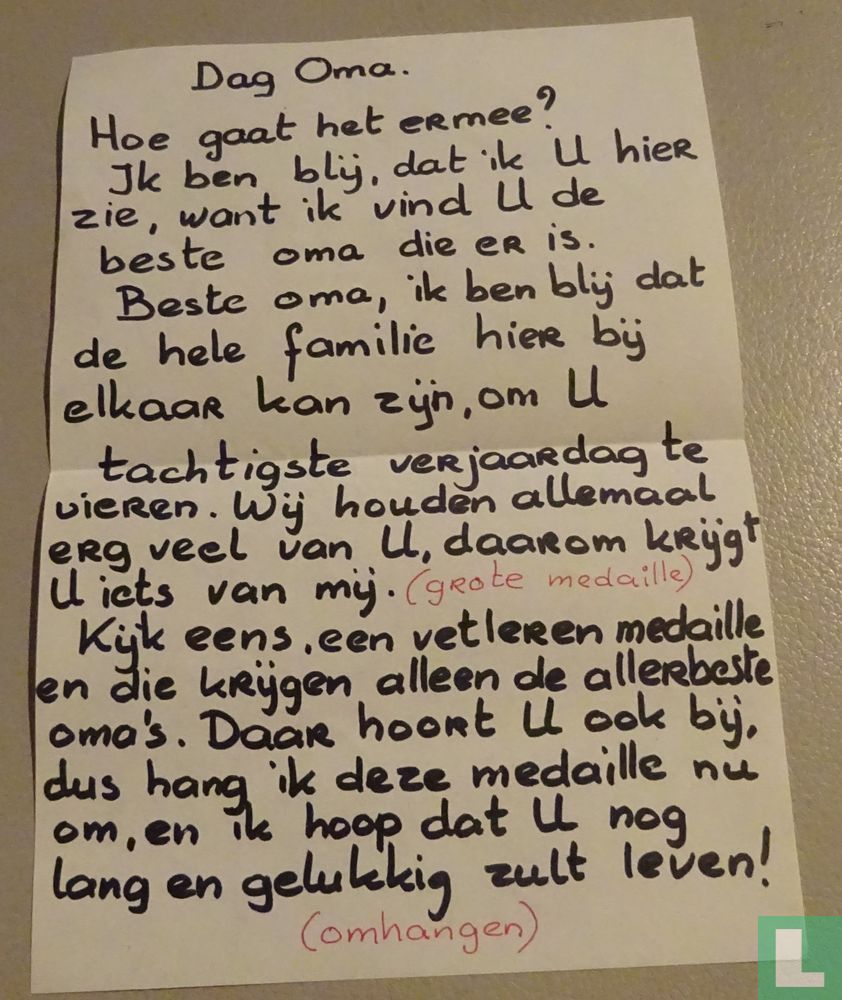 Dag Oma.
Hoe gaat het ermee?
Ik ben blij, dat ik U hier
zie, want ik vind U de
beste oma die er is.
Beste oma, ik ben blij dat
de hele familie hier bij
elkaar kan zijn, om U
tachtigste verjaardag te
vieren. Wij houden allemaal
erg veel van U, daarom krijgt
U iets van mij. (grote medaille)
Kijk eens, een vetleren medaille
en die krijgen alleen de allerbeste
oma's. Daar hoort U ook bij,
dus hang ik deze medaille nu
om, en ik hoop dat U nog
lang en gelukkig zult leven!
(omhangen)
L